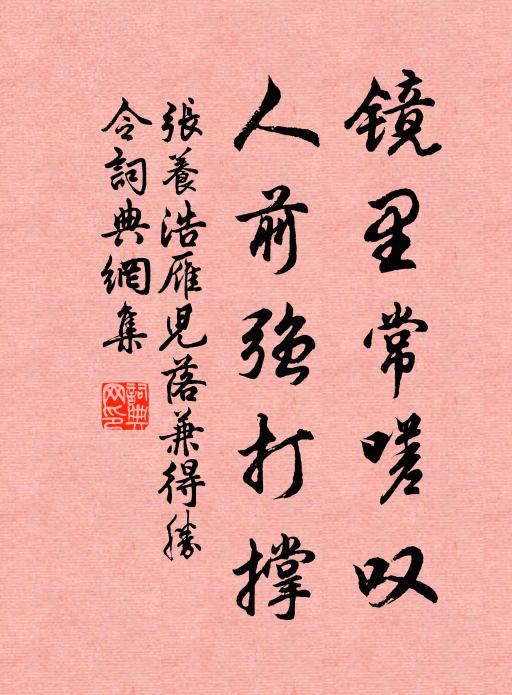 镜里常嗟叹
人前强打撑
張養浩雁児落兼得勝
令詞典網集
詞典
网印